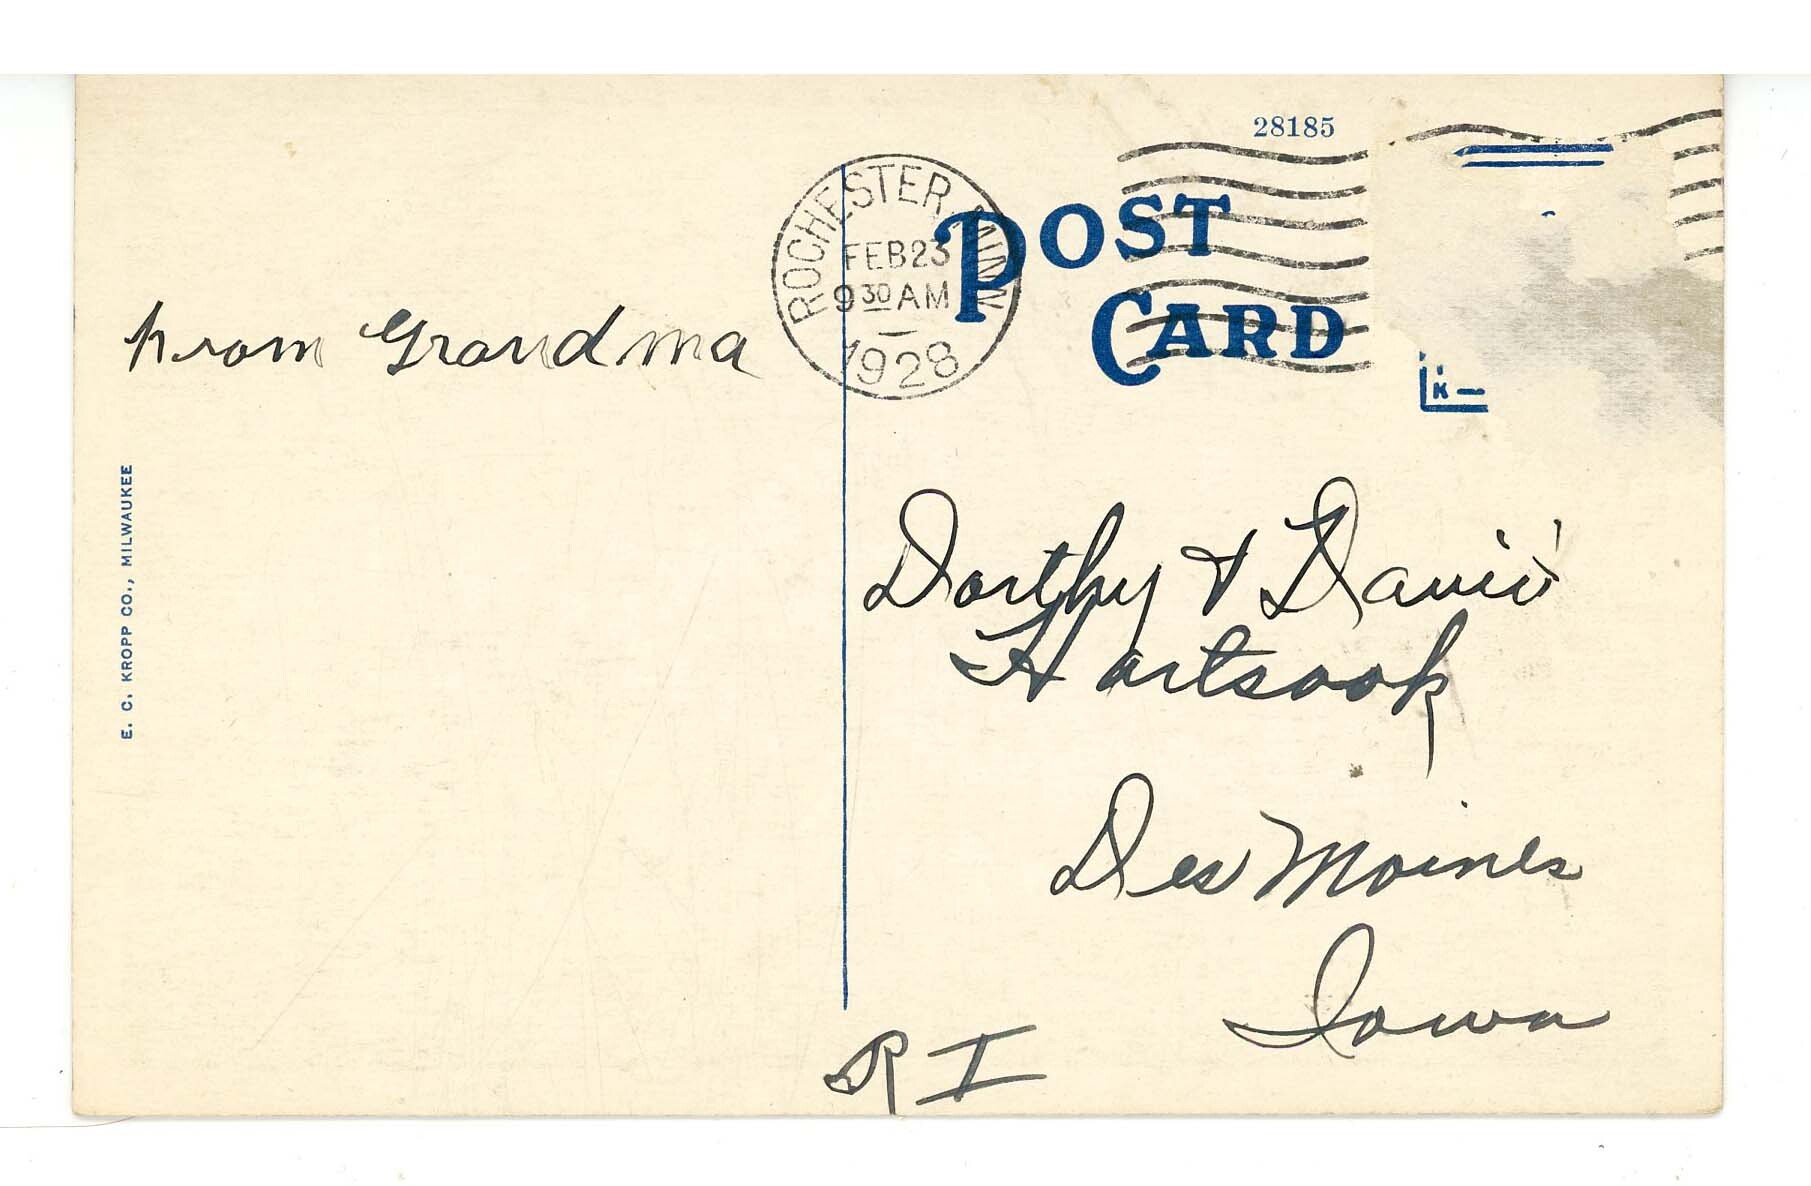 28185
ROCHESTER, MINN.
FEB 23
9 30 AM
1928
POST
CARD
K
from Grandma
E. C. KROPP CO., MILWAUKEE
Dorthy & David
Hartsook
Des Moines
Iowa
R I